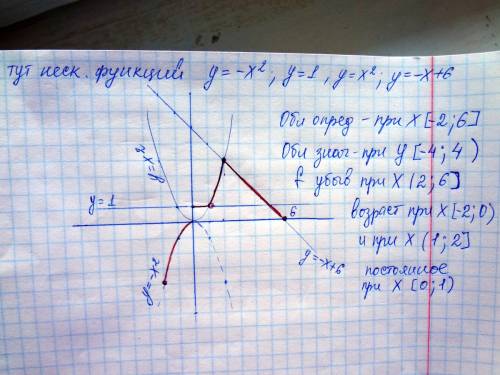 тут неск. функций y = -x², y=1, y=x²; y=-x+6
Обл опред - при x [-2; 6]
Обл знач - при y [-4; 4)
f убыв при x (2; 6]
возраст при x [-2; 0)
и при x (1; 2]
постоянное
при x [0; 1)
y=x²
y=1
6
y=-x+6
y=-x²